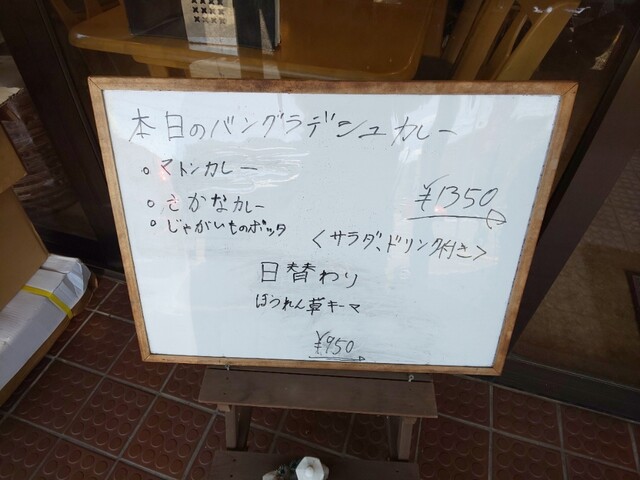 本日のバングラデシュカレー
○マトンカレー
○さかなカレー
○じゃがいものボッタ
¥1350
<サラダ、ドリンク付き>
日替わり
ほうれん草キーマ
¥950